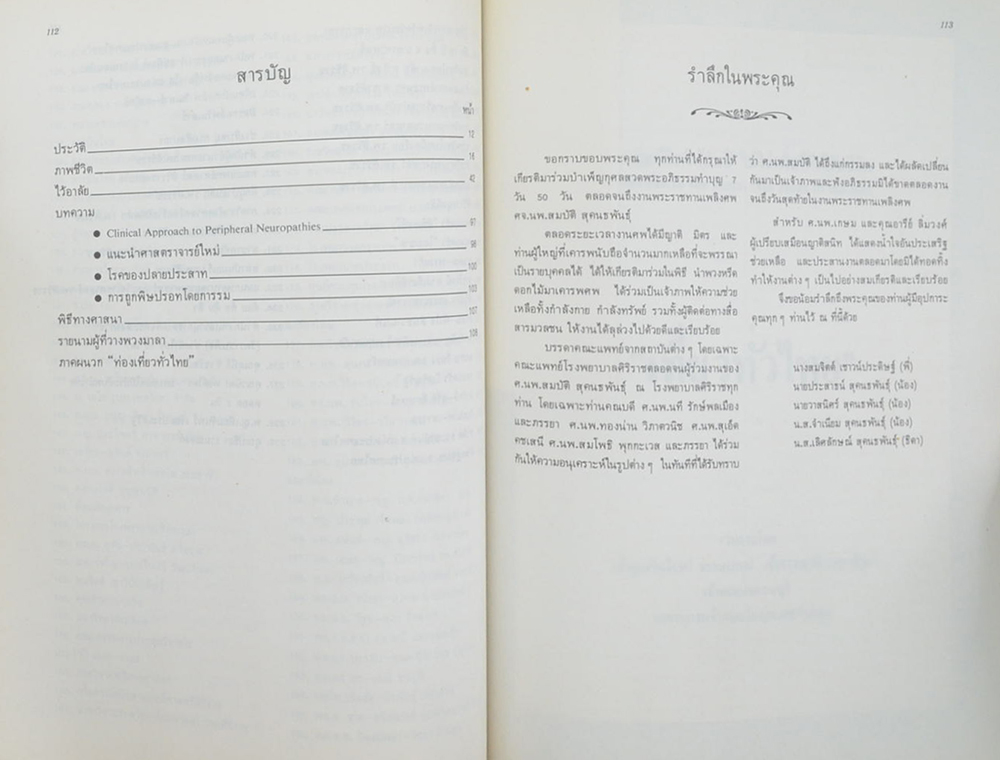 112
สารบัญ
หน้า
ประวัติ 12
ภาพชีวิต 18
ไว้อาลัย 42
บทความ
● Clinical Approach to Peripheral Neuropathies 97
● แนะนำศาสตราจารย์ใหม่ 98
● โรคของปลายประสาท 100
● การถูกพิษปรอทโดยการรม 103
พิธีทางศาสนา 107
รายนามผู้ที่วางพวงมาลา 109
ภาคผนวก “ท่องเที่ยวทั่วไทย”
113
รำลึกในพระคุณ
ขอกราบขอบพระคุณ ทุกท่านที่ได้กรุณาให้
เกียรติมาร่วมบำเพ็ญกุศลสวดพระอภิธรรมทำบุญ 7
วัน 50 วัน ตลอดจนถึงงานพระราชทานเพลิงศพ
ศจ.นพ.สมบัติ สุคนธพันธุ์
ตลอดระยะเวลางานศพได้มีญาติ มิตร และ
ท่านผู้ใหญ่ที่เคารพนับถือจำนวนมากเหลือที่จะพรรณา
เป็นรายบุคคลได้ ได้ให้เกียรติมาร่วมในพิธี นำพวงหรีด
ดอกไม้มาเคารพศพ ได้ร่วมเป็นเจ้าภาพให้ความช่วย
เหลือทั้งกำลังกาย กำลังทรัพย์ รวมทั้งผู้ติดต่อทางสื่อ
สารมวลชน ให้งานได้ลุล่วงไปด้วยดีและเรียบร้อย
บรรดาคณะแพทย์จากสถาบันต่าง ๆ โดยเฉพาะ
คณะแพทย์โรงพยาบาลศิริราชตลอดจนผู้ร่วมงานของ
ศ.นพ.สมบัติ สุคนธพันธุ์ ณ โรงพยาบาลศิริราชทุก
ท่าน โดยเฉพาะท่านคณบดี ศ.นพ.นที รักษ์พลเมือง
และภรรยา ศ.นพ.ทองน่าน วิภาตวนิช ศ.นพ.สุเอ็ด
คชเสนี ศ.นพ.สมโพธิ พุกกะเวส และภรรยา ได้ร่วม
กันให้ความอนุเคราะห์ในรูปต่าง ๆ ในทันทีที่ได้รับทราบ
ว่า ศ.นพ.สมบัติ ได้ถึงแก่กรรมลง และได้ผลัดเปลี่ยน
กันมาเป็นเจ้าภาพและฟังอภิธรรมมิได้ขาดตลอดงาน
จนถึงวันสุดท้ายในงานพระราชทานเพลิงศพ
สำหรับ ศ.นพ.เกษม และคุณอารีย์ ลิ่มวงศ์
ผู้เปรียบเสมือนญาติสนิท ได้แสดงน้ำใจอันประเสริฐ
ช่วยเหลือ และประสานงานตลอดมาโดยมิได้ทอดทิ้ง
ทำให้งานต่าง ๆ เป็นไปอย่างสมเกียรติและเรียบร้อย
จึงขอน้อมรำลึกถึงพระคุณของท่านผู้มีอุปการะ
คุณทุก ๆ ท่านไว้ ณ ที่นี้ด้วย
นางสมจิตต์ เชาวน์ประดิษฐ์ (พี่)
นายประสาธน์ สุคนธพันธุ์ (น้อง)
นายวาสนิศร์ สุคนธพันธุ์ (น้อง)
น.ส.จำเนียม สุคนธพันธุ์ (น้อง)
น.ส.เลิศลักษณ์ สุคนธพันธุ์ (ธิดา)